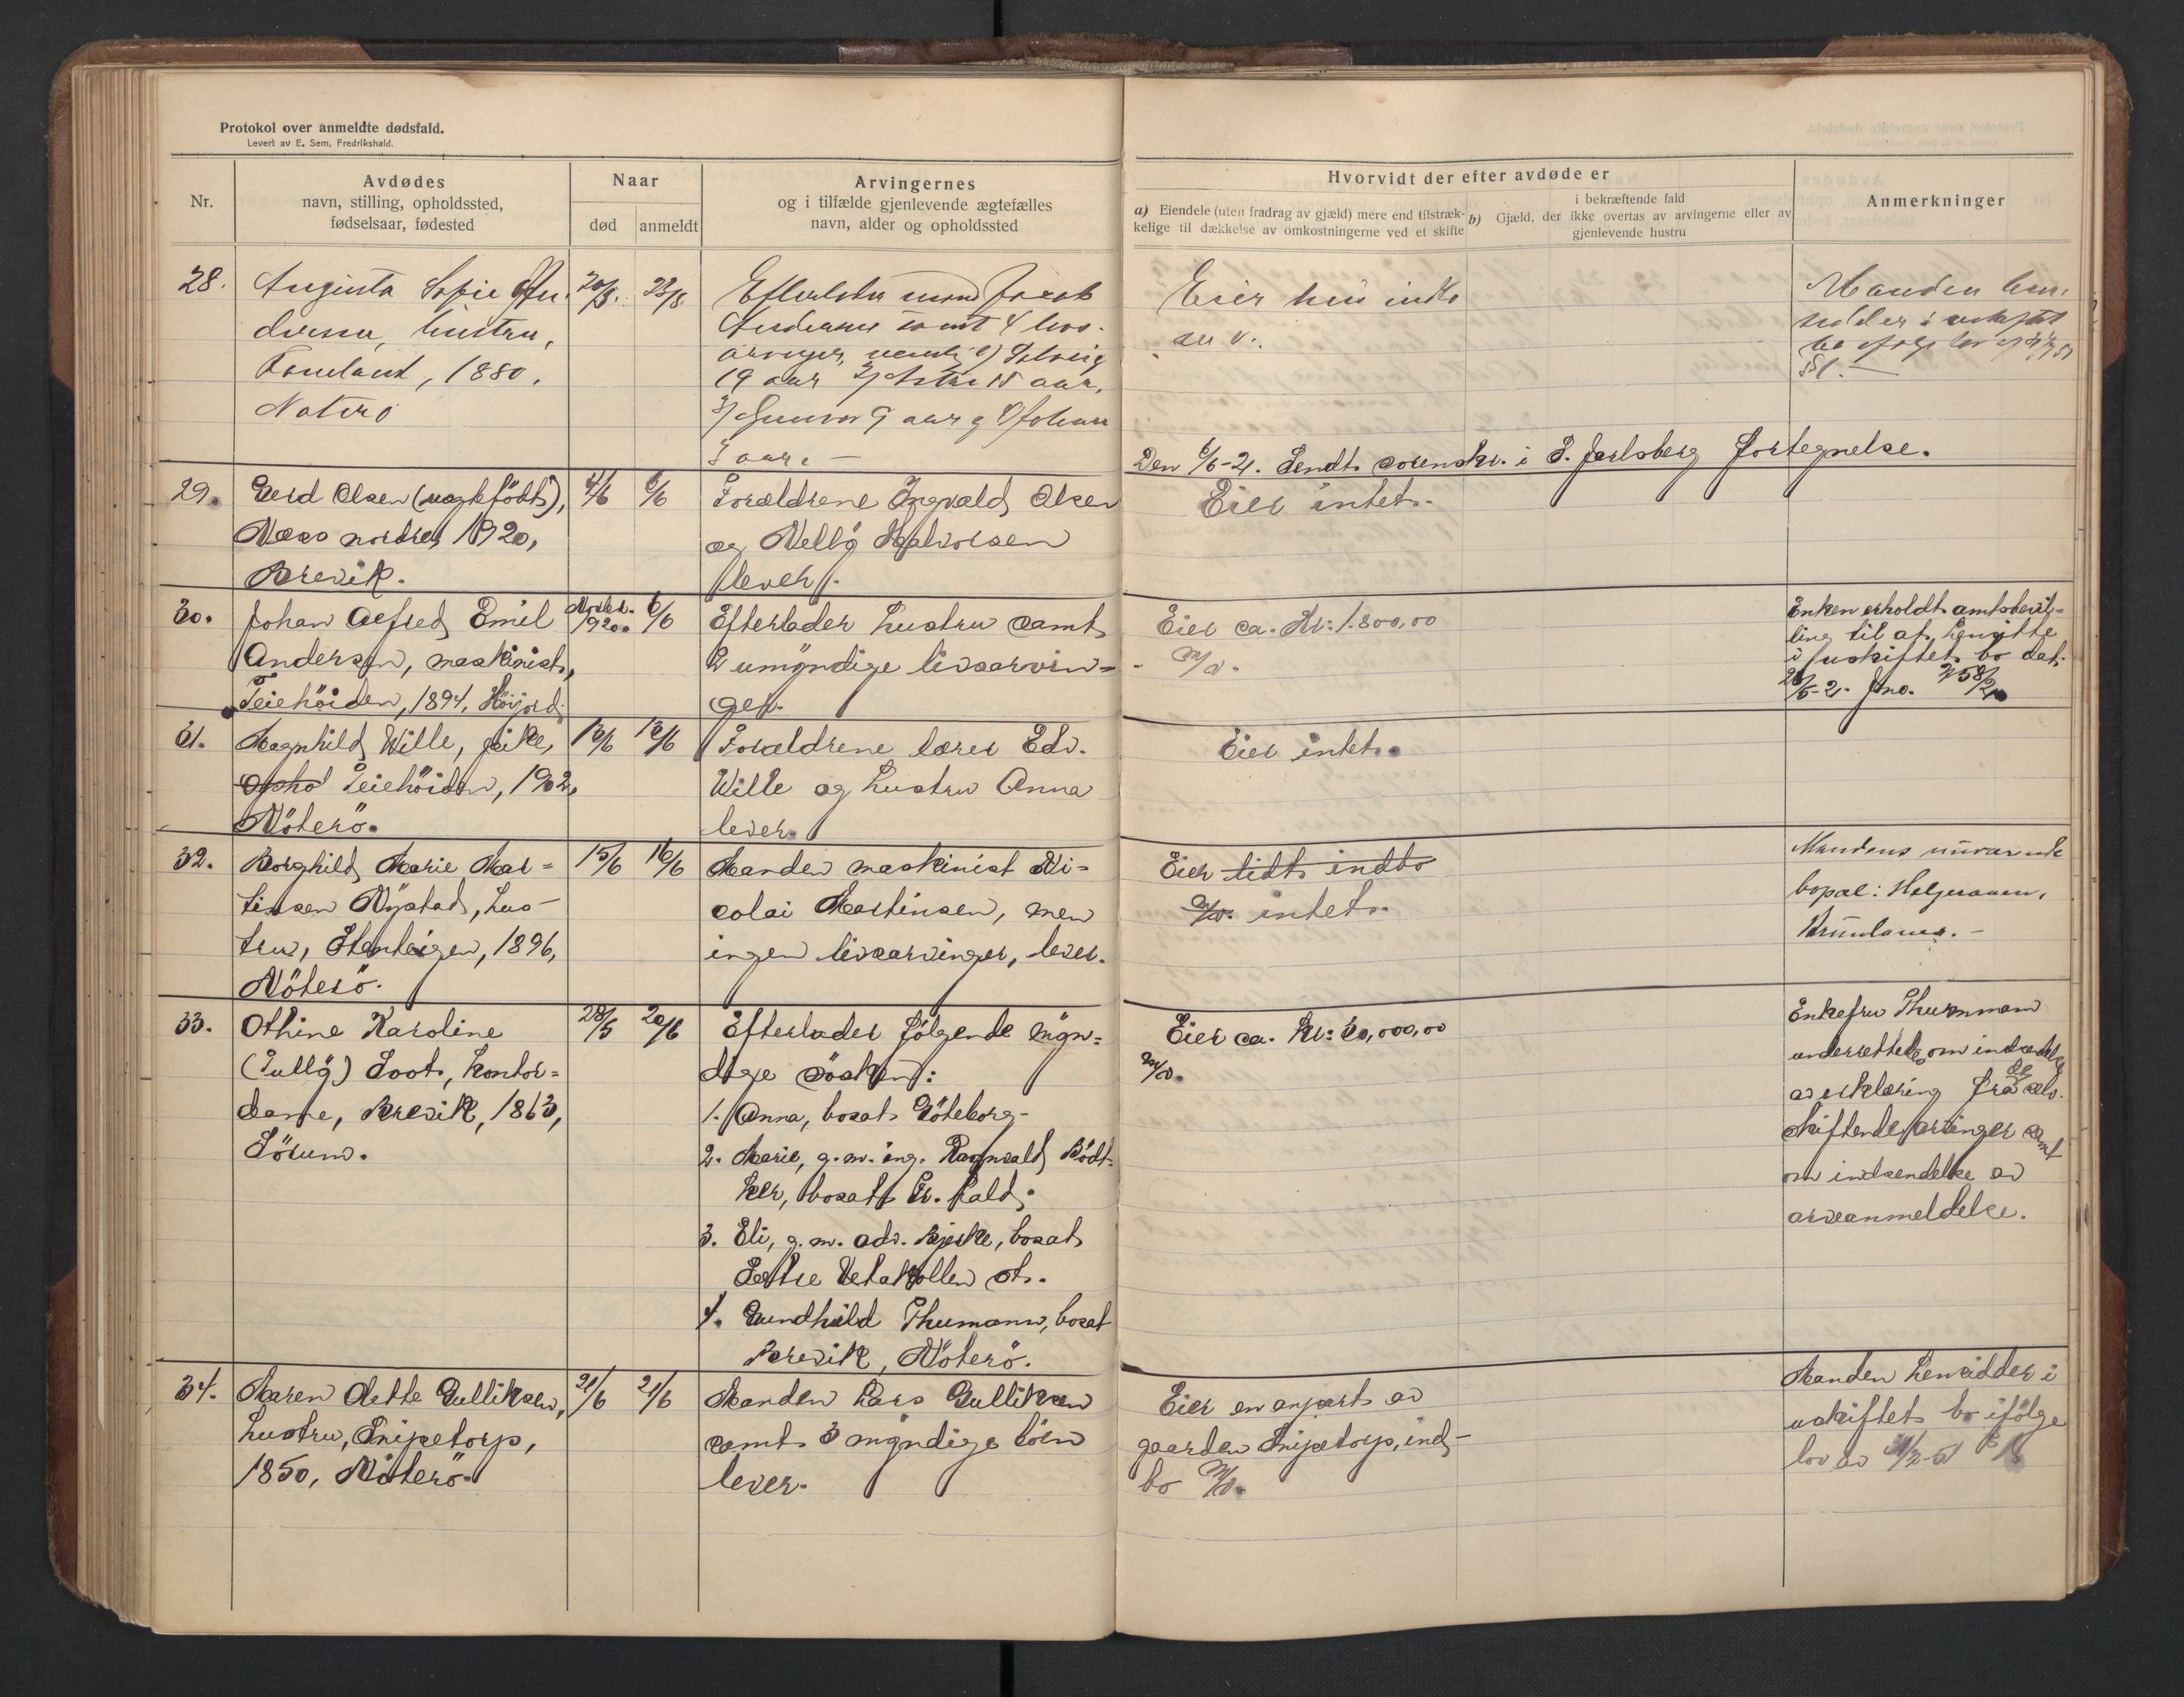 Protokol over anmeldte dødsfald.
Levert av E. Sem, Fredrikshald.
Nr.
Avdødes
navn, stilling, opholdssted,
fødselsaar, fødested
Naar
død
anmeldt
Arvingernes
og i tilfælde gjenlevende ægtefælles
navn, alder og opholdssted
Hvorvidt der efter avdøde er
a) Eiendele (uten fradrag av gjæld) mere end tilstræk-
kelige til dækkelse av omkostningerne ved et skifte
i bekræftende fald
b) Gjæld, der ikke overtas av arvingerne eller av
gjenlevende hustru
Anmerkninger
28.
Augusta Sofie An-
dersen, hustru,
1880,
Nøterø
Efterlater mand Jacob
Andersen samt 4 livs-
arvinger, nemlig 1) Solveig
19 aar 2) 15 aar,
3) Gunvor 9 aar og 4) Johan
7 aar. —
Eier kun indbo
m. v.
Manden hen-
sidder i uskiftet
bo
Den 6/6-21. Sendt sorenskr. i S. Jarlsberg fortegnelse.
29.
Gerd Olsen (uegtefödt),
Næss nordre, 1920,
Brevik.
4/6
6/6
Forældrene Ingvald Olsen
og Nelly Halvorsen
lever.
Eier intet.
30.
Johan Alfred Emil
Andersen, maskinist,
Teiehöiden, 1894, Höijord.
Novbr.
1920.
6/6
Efterlader hustru samt
2 umyndige livsarvin-
ger.
Eier ca. Kr: 1.800,00
m/v.
Enken erholdt amtsbevil-
ling til at hensitte
i uskiftet bo dat.
28/5-21. Jno. 758/21
31.
Magnhild Wille, pike,
Teiehöiden, 1902,
Nöterö.
13/6
13/6
Forældrene lærer Edv.
Wille og hustru Anna
lever.
Eier intet.
32.
Borghild Marie Mar-
tinsen Nystad, hus-
tru, Stenteigen, 1896,
Nöterö.
15/6
16/6
Manden maskinist Ni-
colai Martinsen, men
ingen livsarvinger, lever.
Eier lidt indbo
m/v. intet.
Mandens nuværende
bopæl: Helgeroaen,
Brunlanes. —
33.
Othine Karoline
(Tully) Soot, kontor-
dame, Brevik, 1863,
Sörum.
28/5
20/6
Efterlader følgende myn-
dige søsken:
1. Anna, bosat Göteborg.
2. Marie, g. m. ing. Ragnvald Bödt-
ker, bosatt Fr. hald;
3. Eli, g. m. adv. Bjerke, bosat
Vetakollen st.
4. Gundhild Thumann, bosat
Brevik, Nöterö.
Eier ca. kr: 30,000,00
m/v.
Enkefru Thummann
underrettet om indsendelse
av erklæring fra de selv-
skiftende arvinger samt
om indsendelse av
arveanmeldelse.
34.
Maren Mette Gulliksen,
hustru, Snipetorp,
1850, Nöterö.
21/6
21/6
Manden Lars Gulliksen
samt 3 myndige börn
lever.
Eier en anpart av
gaarden Snipetorp, ind-
bo m/v.
Manden hensidder i
uskiftet bo ifölge
lov av